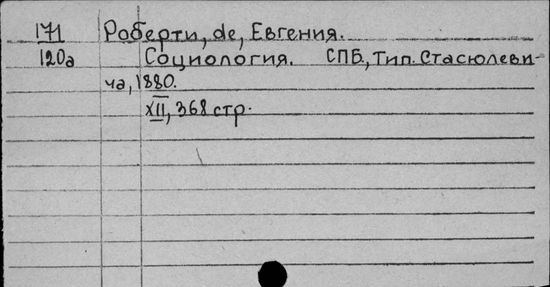 171 Роберти, de, Евгения.
120а Социология. СПБ., Тип. Стасюлеви-
ча, 1880.
XII, 368 стр.